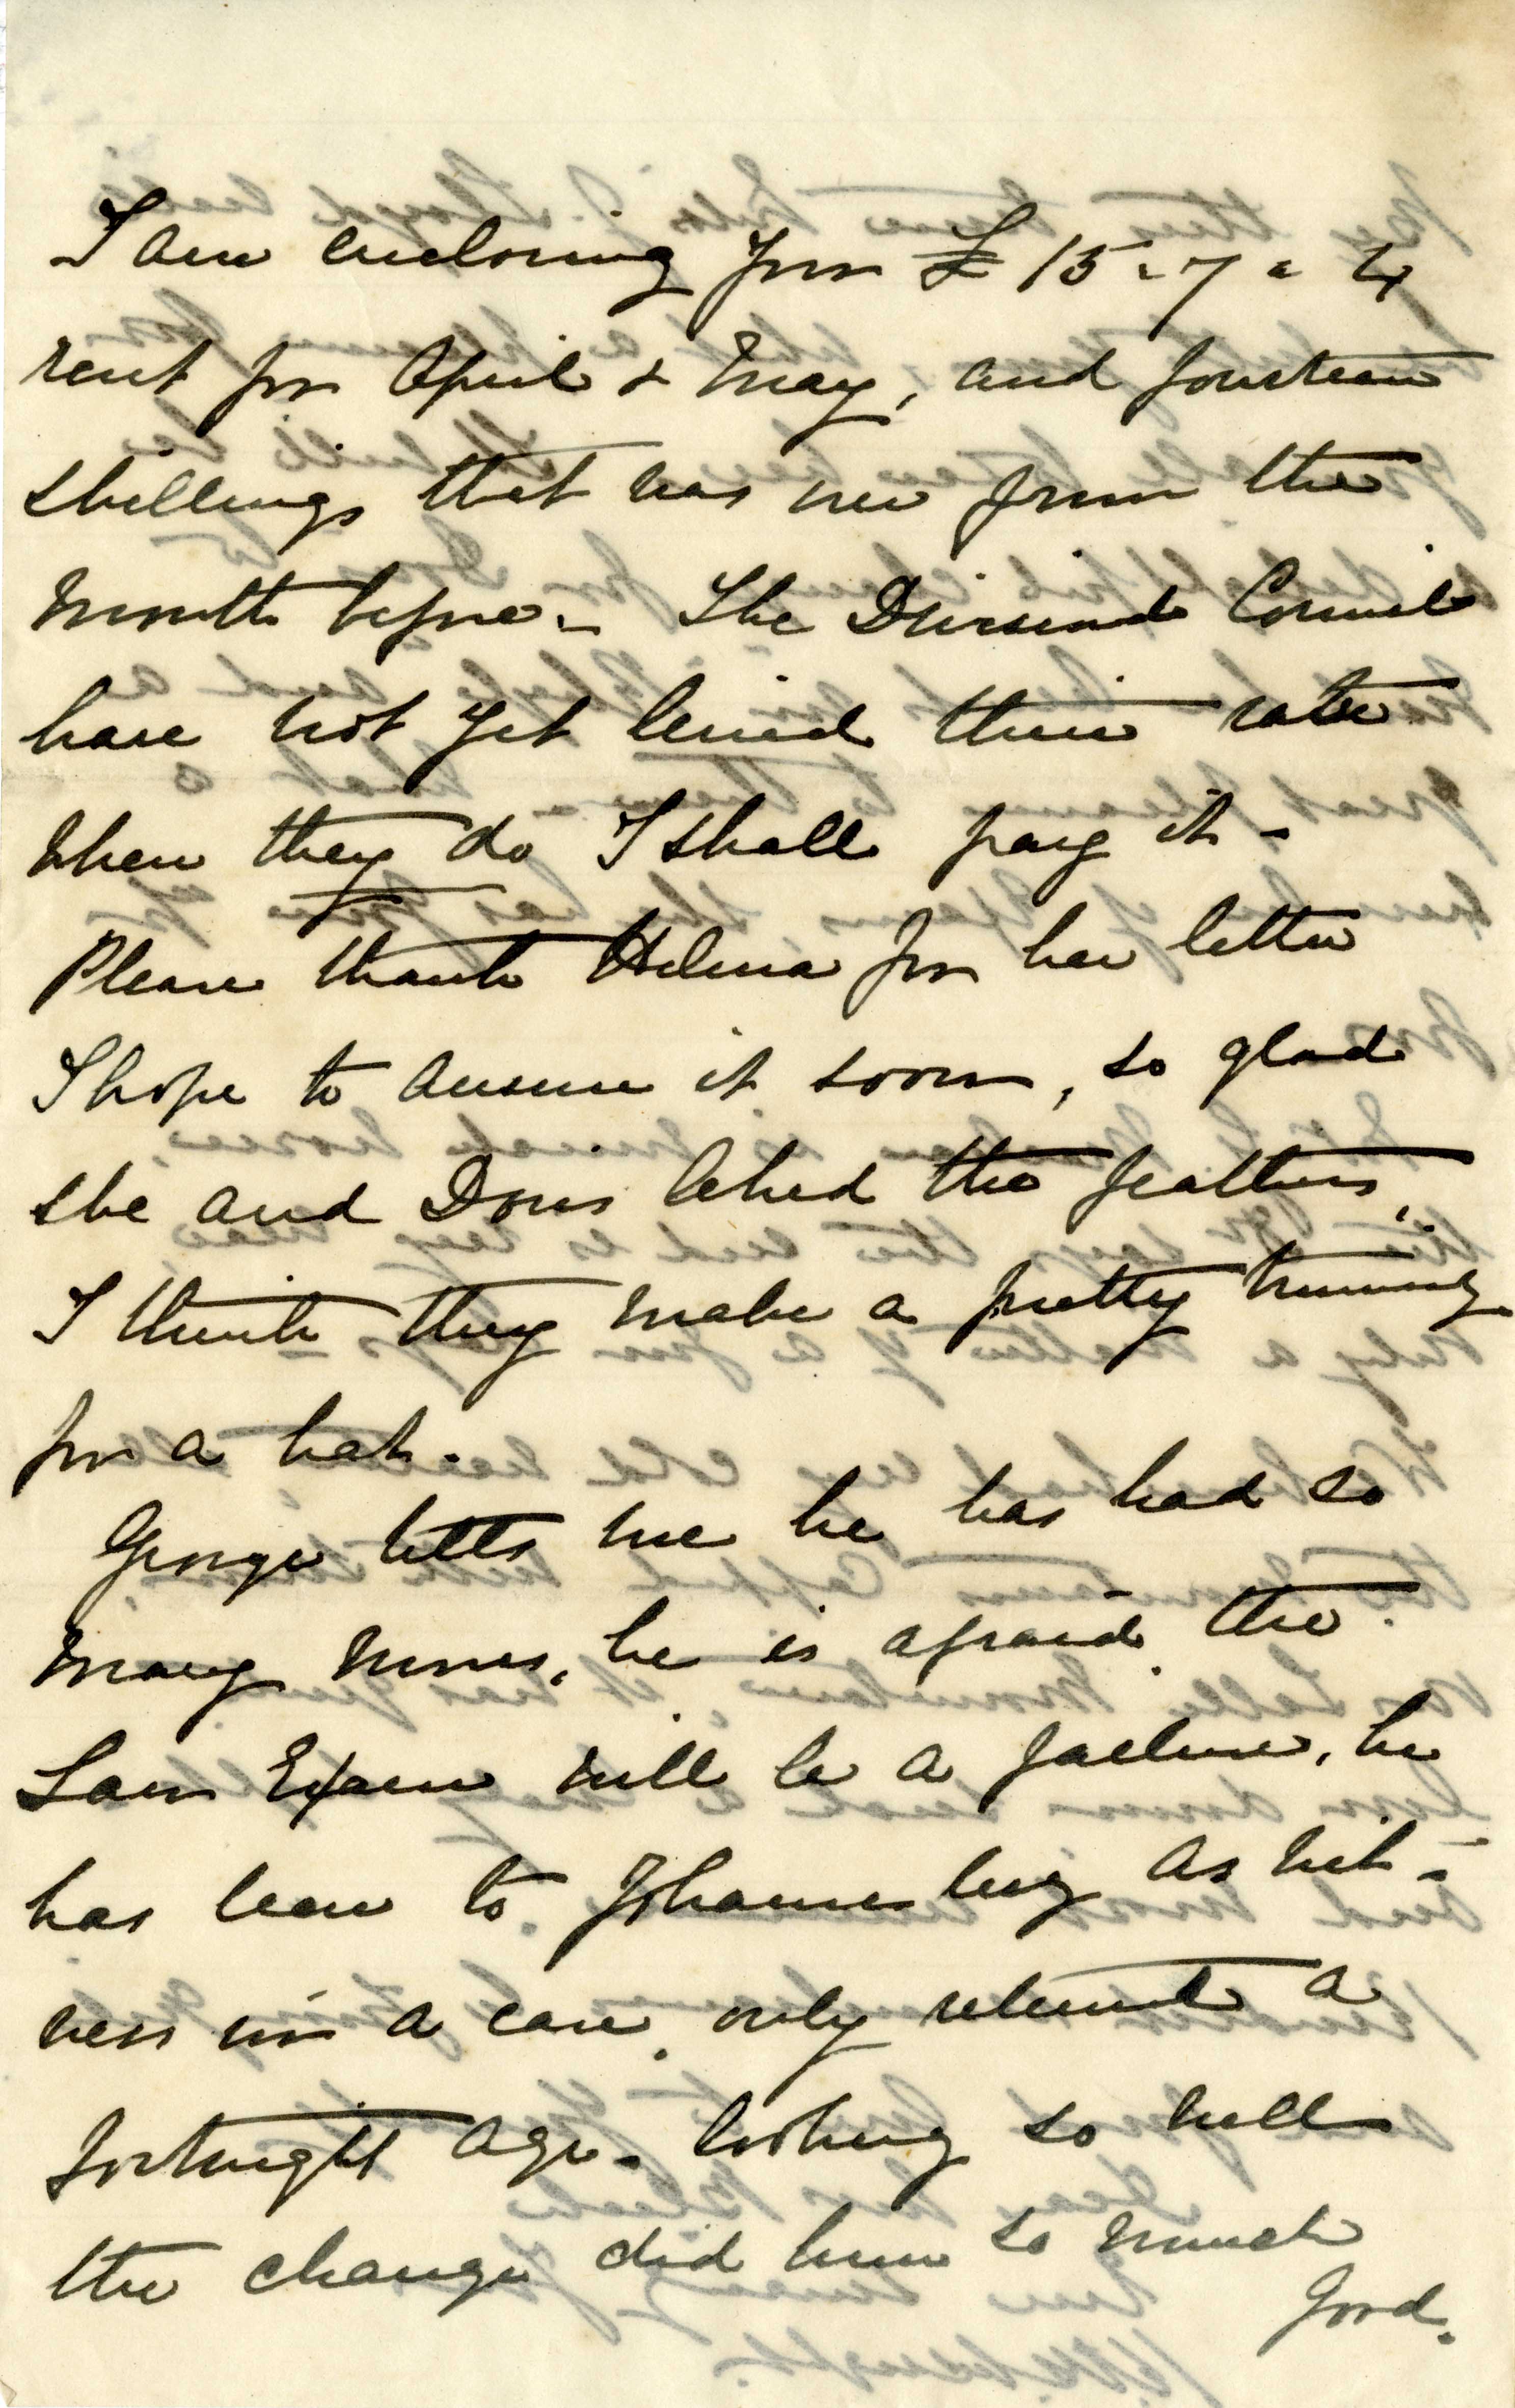 I am enclosing you £15-7-4
rent for April & May, and fourteen
shillings that was over from the
month before - The Divisional Council
have not yet levied their rate
when they do I shall pay it -
Please thank Helena for her letter
I hope to answer it soon, so glad
she and Doris liked the feathers,
I think they make a pretty trimming
for a hat.
George tells me he has had so
many moves, he is afraid the
Law Exam will be a failure, he
has been to Johannesburg as wit-
ness in a case, only returned a
fortnight ago - looking so well
the change did him so much
good.